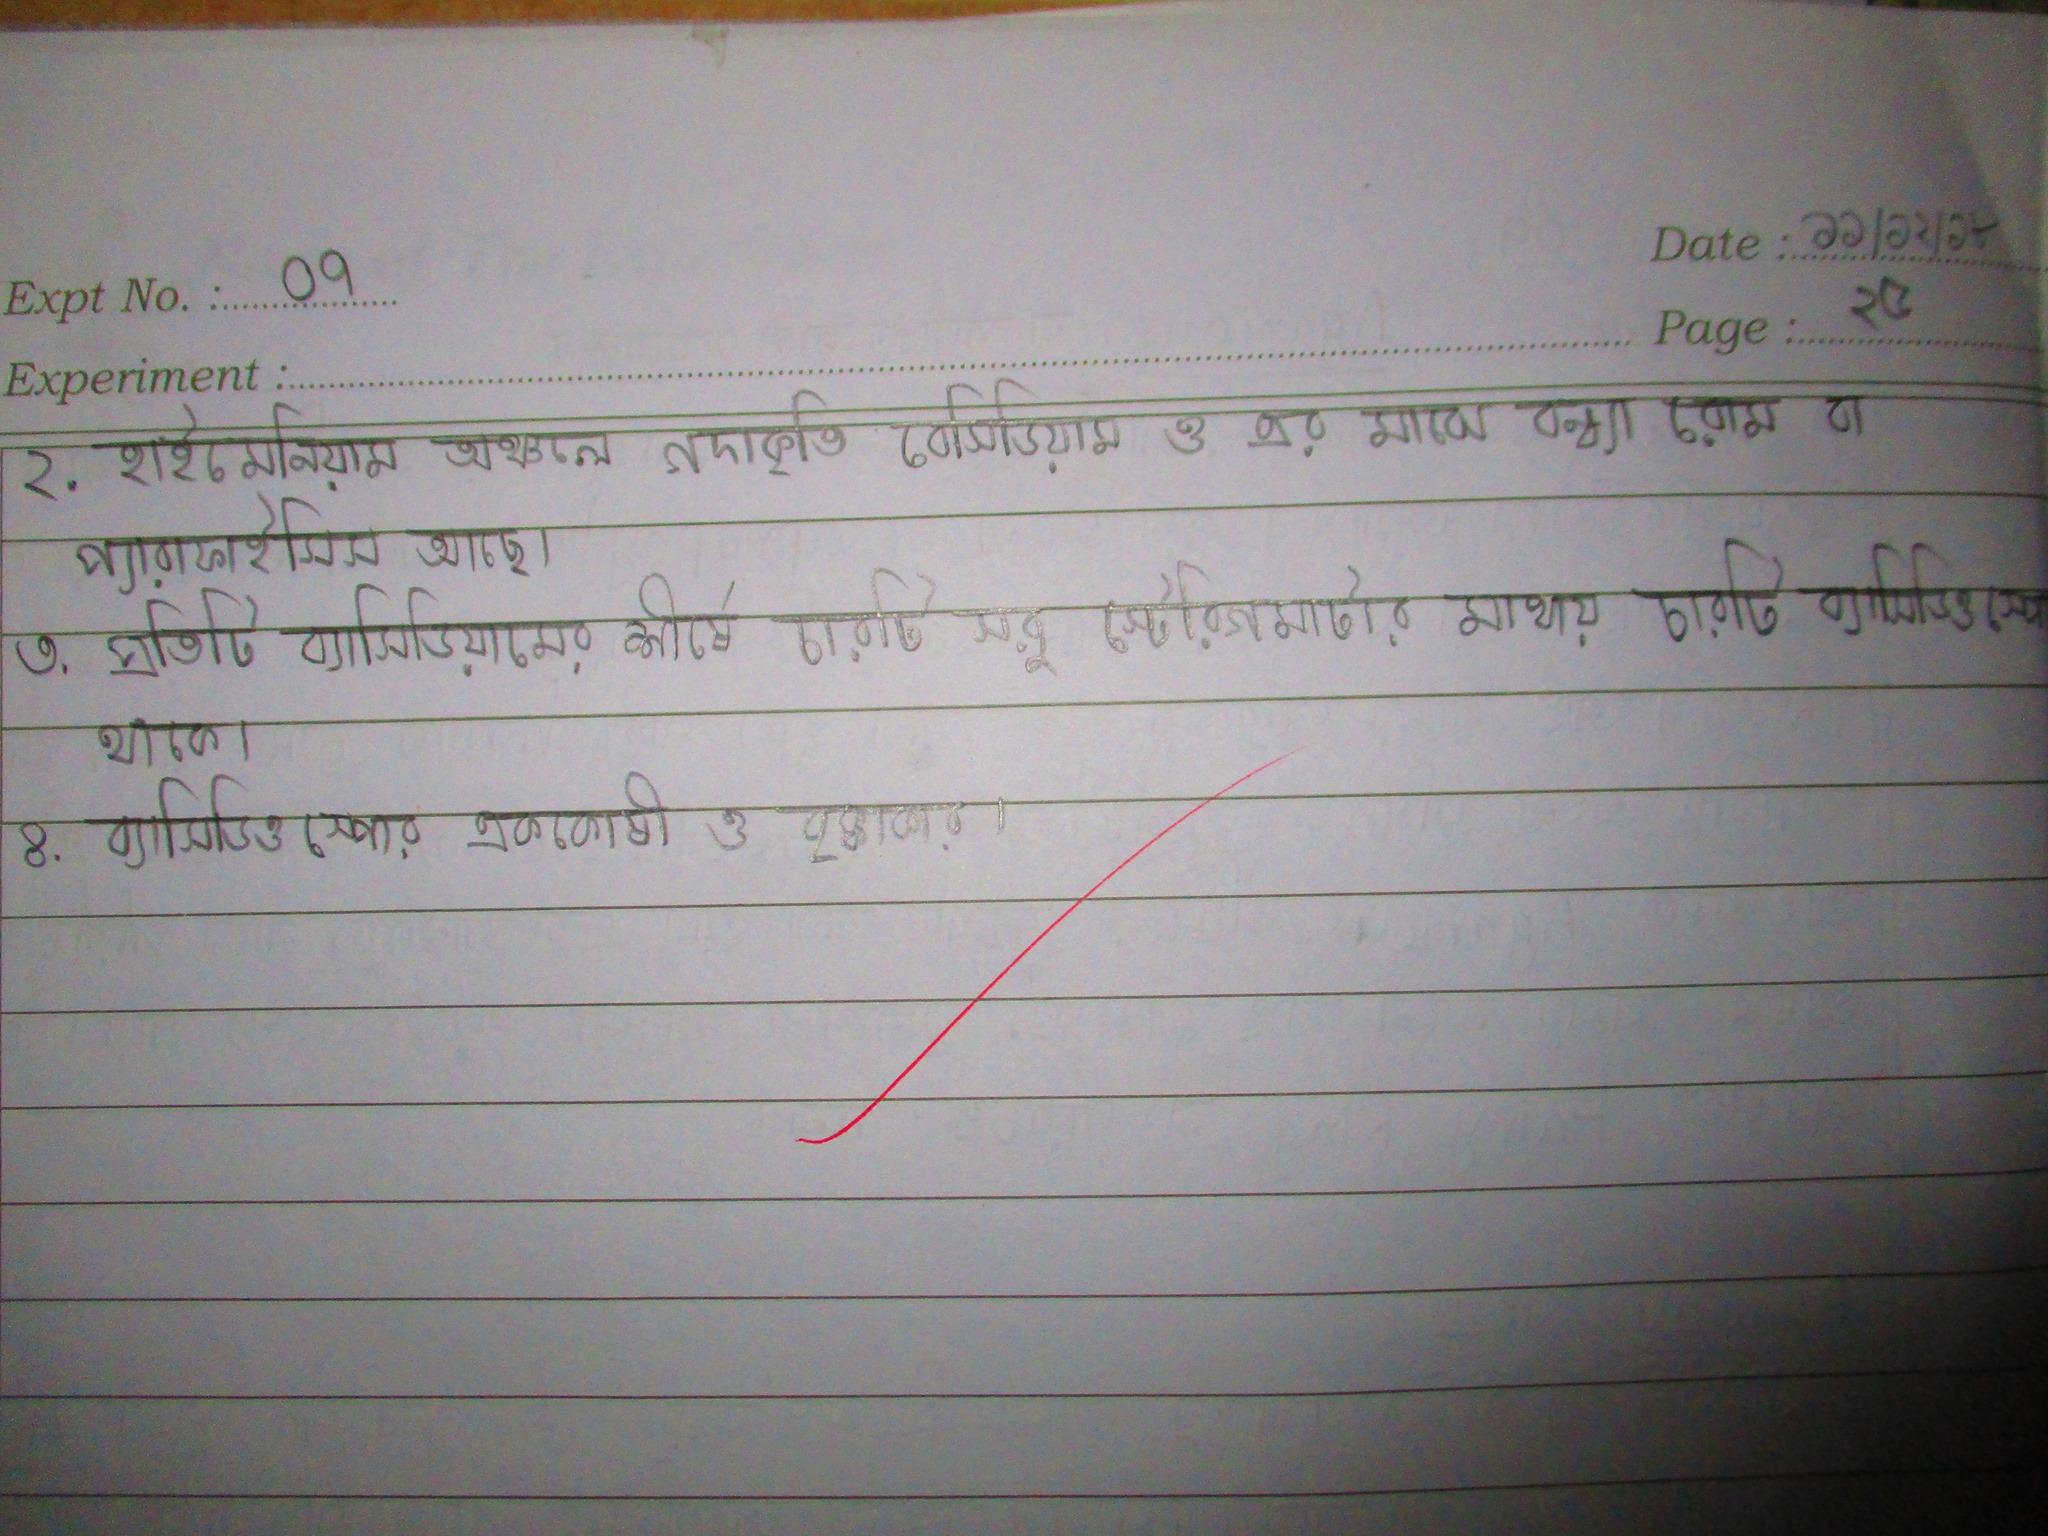 Date : ১১/১২/১৮
Expt No. : ০৭
Page : ২৫
Experiment :
২. হাইমেনিয়াম অঞ্চলে গদাকৃতি বেসিডিয়াম ও এর মাঝে বন্ধ্যা রোম বা
প্যারাফাইসিস আছে।
৩. প্রতিটি ব্যাসিডিয়ামের শীর্ষে চারটি সরু স্টেরিগমাটার মাথায় চারটি ব্যাসিডিওস্পো
থাকে।
৪. ব্যাসিডিওস্পোর এককোষী ও বৃত্তাকার।